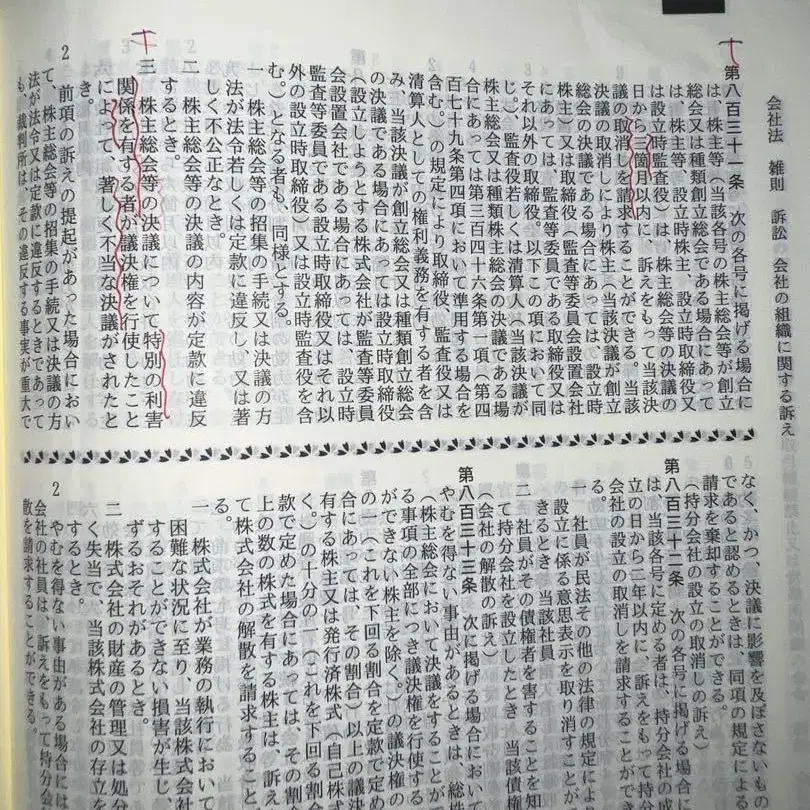 会社法　雑則　訴訟　会社の組織に関する訴え
第八百三十一条　次の各号に掲げる場合に
は、株主等（当該各号の株主総会等が創立
総会又は種類創立総会である場合にあって
は、株主等、設立時株主、設立時取締役又
は設立時監査役）は、株主総会等の決議の
日から三箇月以内に、訴えをもって当該決
議の取消しを請求することができる。当該
決議の取消しにより株主（当該決議が創立
総会の決議である場合にあっては、設立時
株主）又は取締役（監査等委員会設置会社
にあっては、監査等委員である取締役又は
それ以外の取締役。以下この項において同
じ。）、監査役若しくは清算人（当該決議が
株主総会又は種類株主総会の決議である場
合にあっては第三百四十六条第一項（第四
百七十九条第四項において準用する場合を
含む。）の規定により取締役、監査役又は
清算人としての権利義務を有する者を含
み、当該決議が創立総会又は種類創立総会
の決議である場合にあっては設立時取締役
（設立しようとする株式会社が監査等委員
会設置会社である場合にあっては、設立時
監査等委員である設立時取締役又はそれ以
外の設立時取締役）又は設立時監査役を含
む。）となる者も、同様とする。
一　株主総会等の招集の手続又は決議の方
法が法令若しくは定款に違反し、又は著
しく不公正なとき。
二　株主総会等の決議の内容が定款に違反
するとき。
三　株主総会等の決議について特別の利害
関係を有する者が議決権を行使したこと
によって、著しく不当な決議がされたと
き。
2　前項の訴えの提起があった場合におい
て、株主総会等の招集の手続又は決議の方
法が法令又は定款に違反するときであって
も、裁判所は、その違反する事実が重大で
なく、かつ、決議に影響を及ぼさないも
であると認めるときは、同項の規定によ
請求を棄却することができる。
（持分会社の設立の取消しの訴え）
第八百三十二条　次の各号に掲げる場合
は、当該各号に定める者は、持分会社の成
立の日から二年以内に、訴えをもって持分
会社の設立の取消しを請求することがで
る。
一　社員が民法その他の法律の規定によ
設立に係る意思表示を取り消すことが
きるとき　当該社員
二　社員がその債権者を害することを知
て持分会社を設立したとき　当該債権
（会社の解散の訴え）
第八百三十三条　次に掲げる場合におい
やむを得ない事由があるときは、総株
（株主総会において決議をすることがで
る事項の全部につき議決権を行使する
ができない株主を除く。）の議決権の
の一（これを下回る割合を定款で定め
合にあっては、その割合）以上の議決
有する株主又は発行済株式（自己株式
く。）の十分の一（これを下回る割合
款で定めた場合にあっては、その割
上の数の株式を有する株主は、訴え
て株式会社の解散を請求すること
る。
一　株式会社が業務の執行において
困難な状況に至り、当該株式会社
することができない損害が生じ、
ずるおそれがあるとき。
二　株式会社の財産の管理又は処分
く失当で、当該株式会社の存立を
するとき。
2　やむを得ない事由がある場合には
会社の社員は、訴えをもって持分会
散を請求することができる。